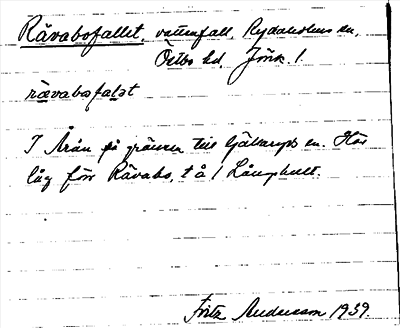 Rävabofallet, vattenfall, Rydaholms sn,
Östbo hd, Jönk. l.
rävabofalət
I Årån på gränsen till Gällaryds sn. Här
låg förr Rävabo, t å / Långhult.
Fritz Anderson 1939.